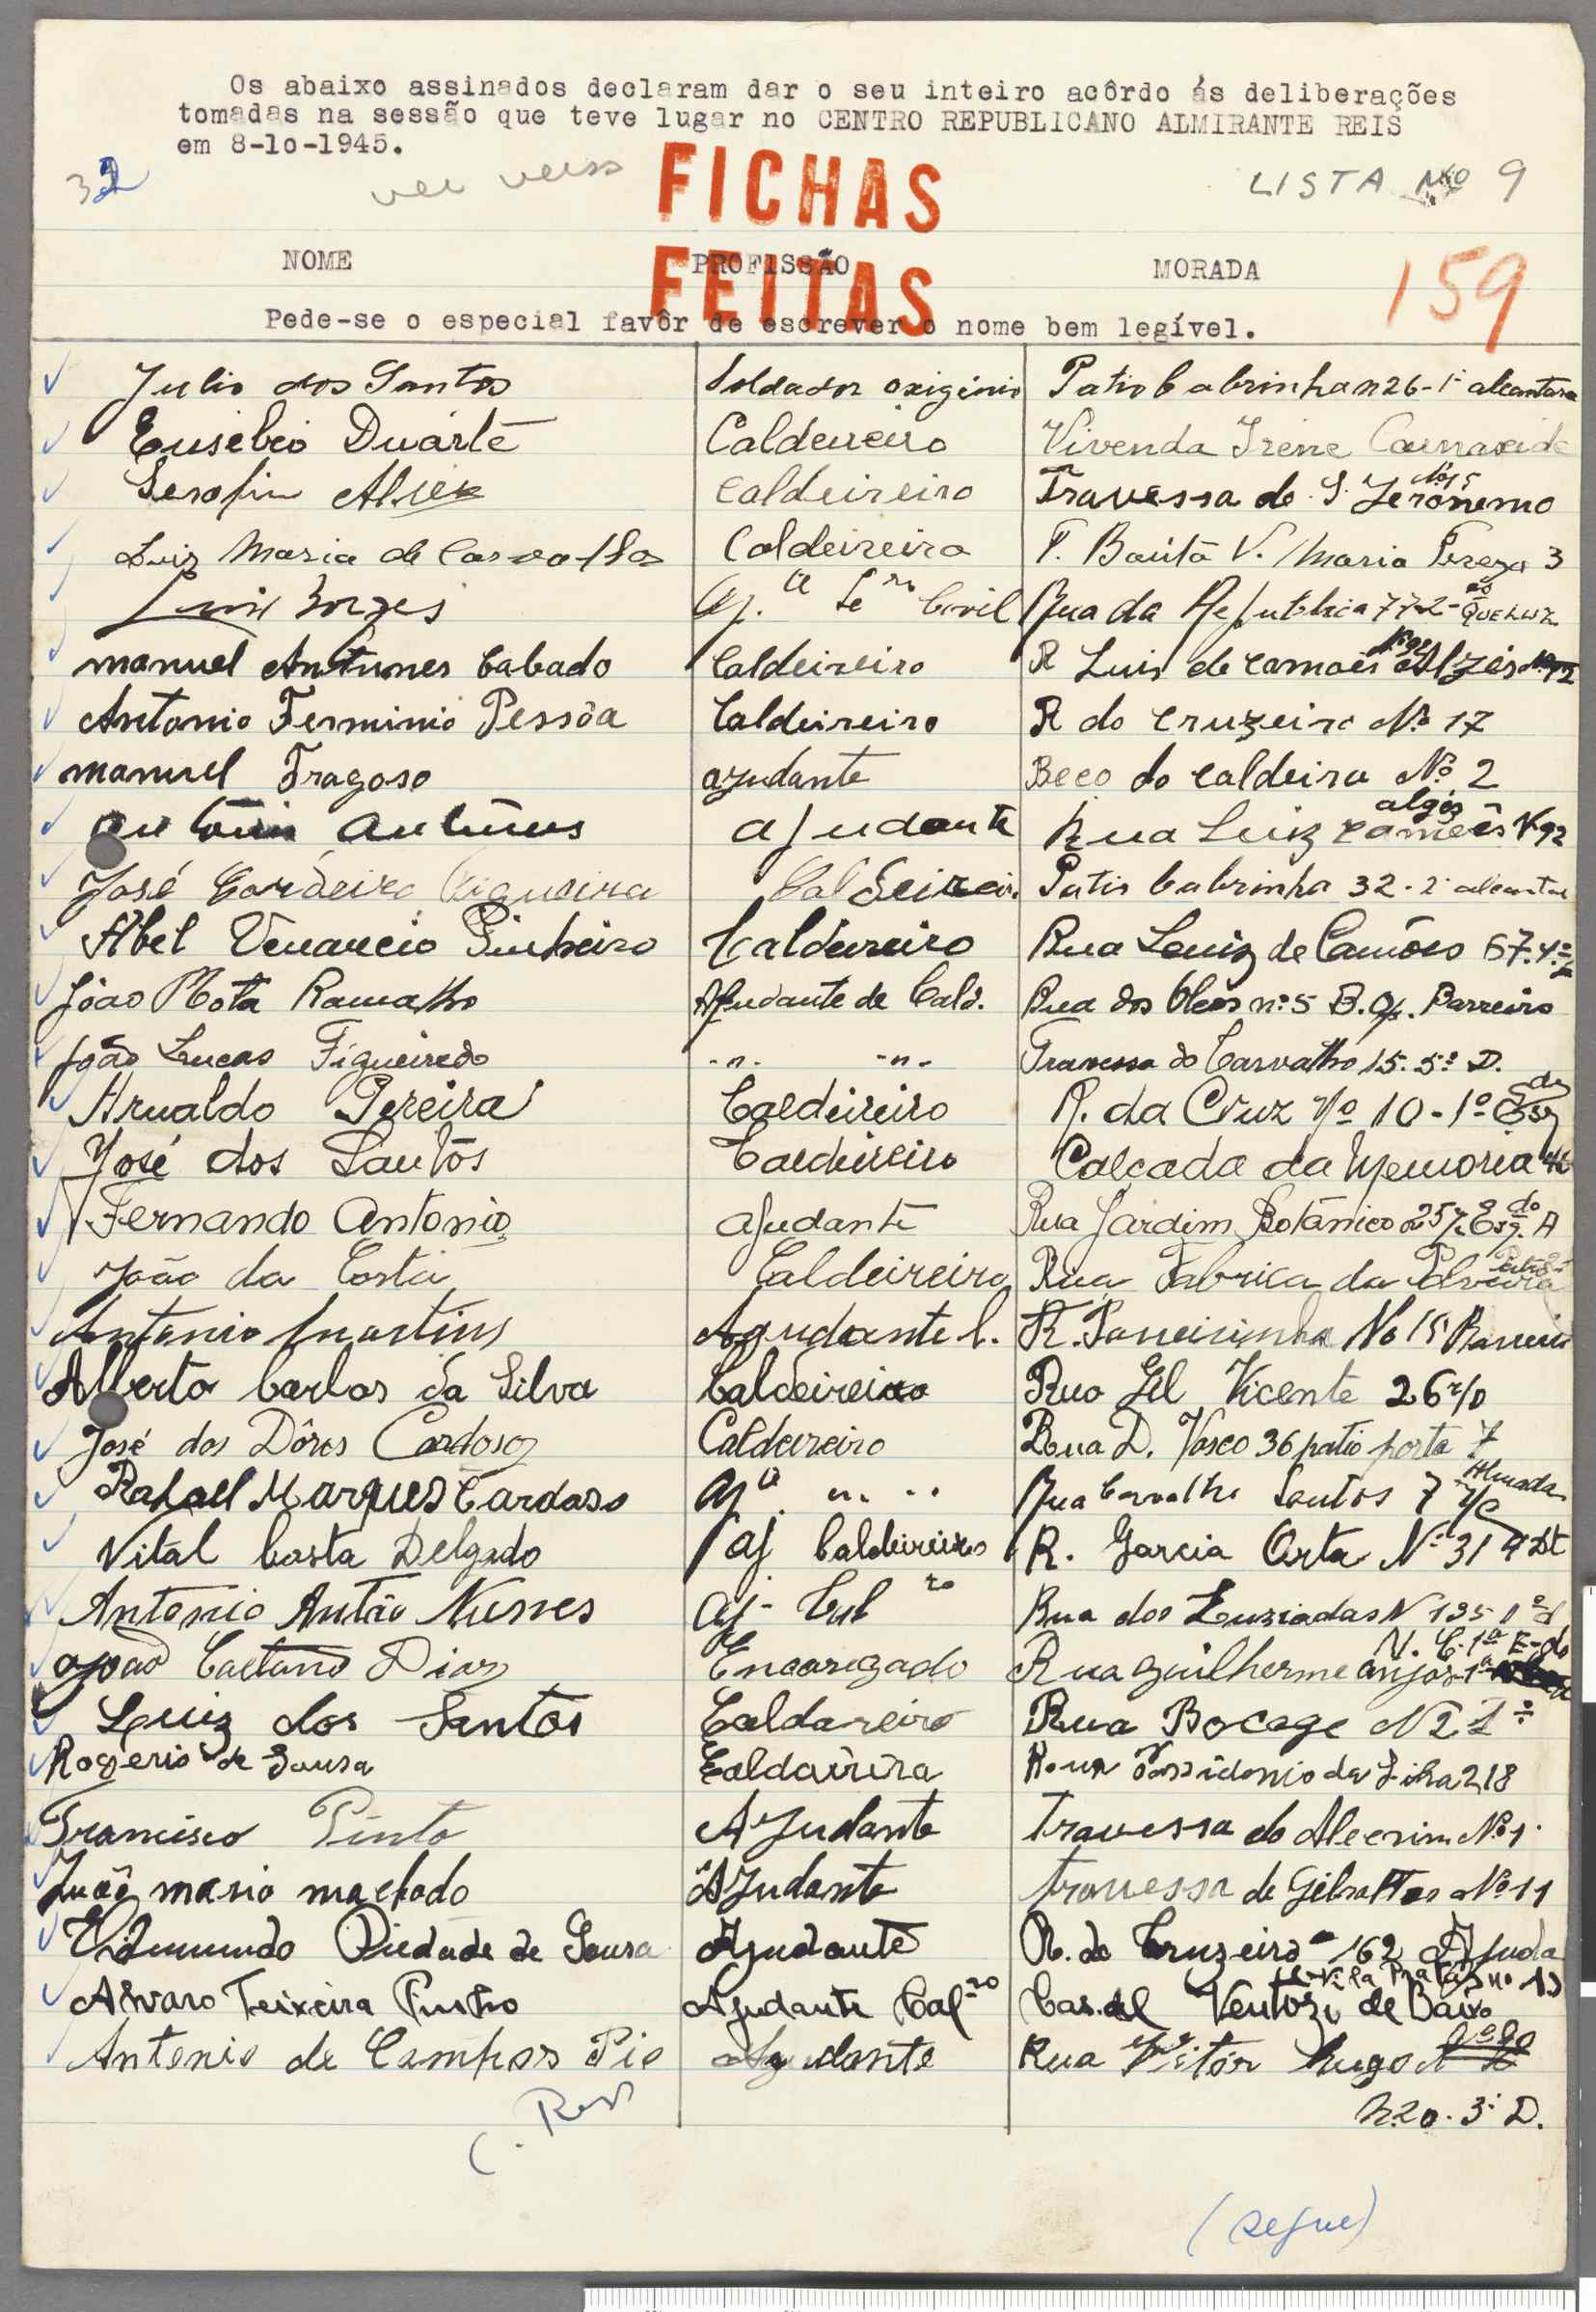 Os abaixo assinados declaram dar o seu inteiro acôrdo ás deliberações
tomadas na sessão que teve lugar no CENTRO REPUBLICANO ALMIRANTE REIS
em 8-10-1945.
32 ver verso FICHAS LISTA Nº 9
NOME PROFISSÃO MORADA
FEITAS 159
Pede-se o especial favôr de escrever o nome bem legível.
Julio dos Santos Soldador oxigénio Patio Cabrinha n 26-1º alcantara
Eusébio Duarte Caldeireiro Vivenda Irene Carnaxide
Serafim Alves Caldeireiro Travessa de S. Jeronemo
Luiz Maria de Carvalho Caldeireiro T. Maria 3
Luis Borges Civil Rua da Republica 77-2- QUELUZ
manuel Antunes Cabado Caldeireiro R Luis de camoes Algés
Antonio Ferminio Pessôa Caldeireiro R do cruzeiro Nº 17
manuel Fragoso azudante Beco do caldeira Nº 2
Antonio Antunes ajudante Rua Luiz camões algés Nº 92
José Cordeiro Caldeireiro Patio Cabrinha 32-2º
Abel Venancio Pinheiro Caldeireiro Rua Luiz de Camões 67-4º
João Mota Ramalho Ajudante de Cald. Rua dos nº 5 Barreiro
João Lucas Figueiredo -"- -"- Travessa do Carvalho 15-5º D.
Arnaldo Pereira Caldeireiro R. da Cruz Nº 10-1º Esq
José dos Santos Caldeireiro Calcada da Memoria
Fernando Antonio ajudante Rua Jardim Botânico
João da Costa Caldeireiro Rua Fabrica da Polvora
Antonio Martins Ajudante C. R. No 15
Alberto Carlos da Silva Caldeireiro Rua Gil Vicente 26 r/o
José das Dôres Cardoso Caldeireiro Rua D. Vasco 36 patio porta 7
Rafael Marques Cardoso Rua Carvalho Santos 7 Almada
Vital Costa Delgado aj Caldeireiro R. Garcia Orta Nº 31
Antonio Antão Nunes aj- Rua dos Luziadas N 135
João Caetano Dias Encaregado Rua guilherme anjos
Luiz dos Santos Caldareiro Rua Bocage N 2 1º
Rogerio de Sousa Caldairira da Silva 218
Francisco Pinto Azudante Travessa do Alecrim Nº 1
João mario machado Azudante travessa de Gibraltar Nº 11
Edmundo Piedade de Sousa Ajudante R. do Cruzeiro 162 Ajuda
Alvaro Teixeira Ajudante Calro Casal Ventozo de Baixo
Antonio de Campos Pio Ajudante Rua Vitor hugo N
n. 20-3º D.
(segue)